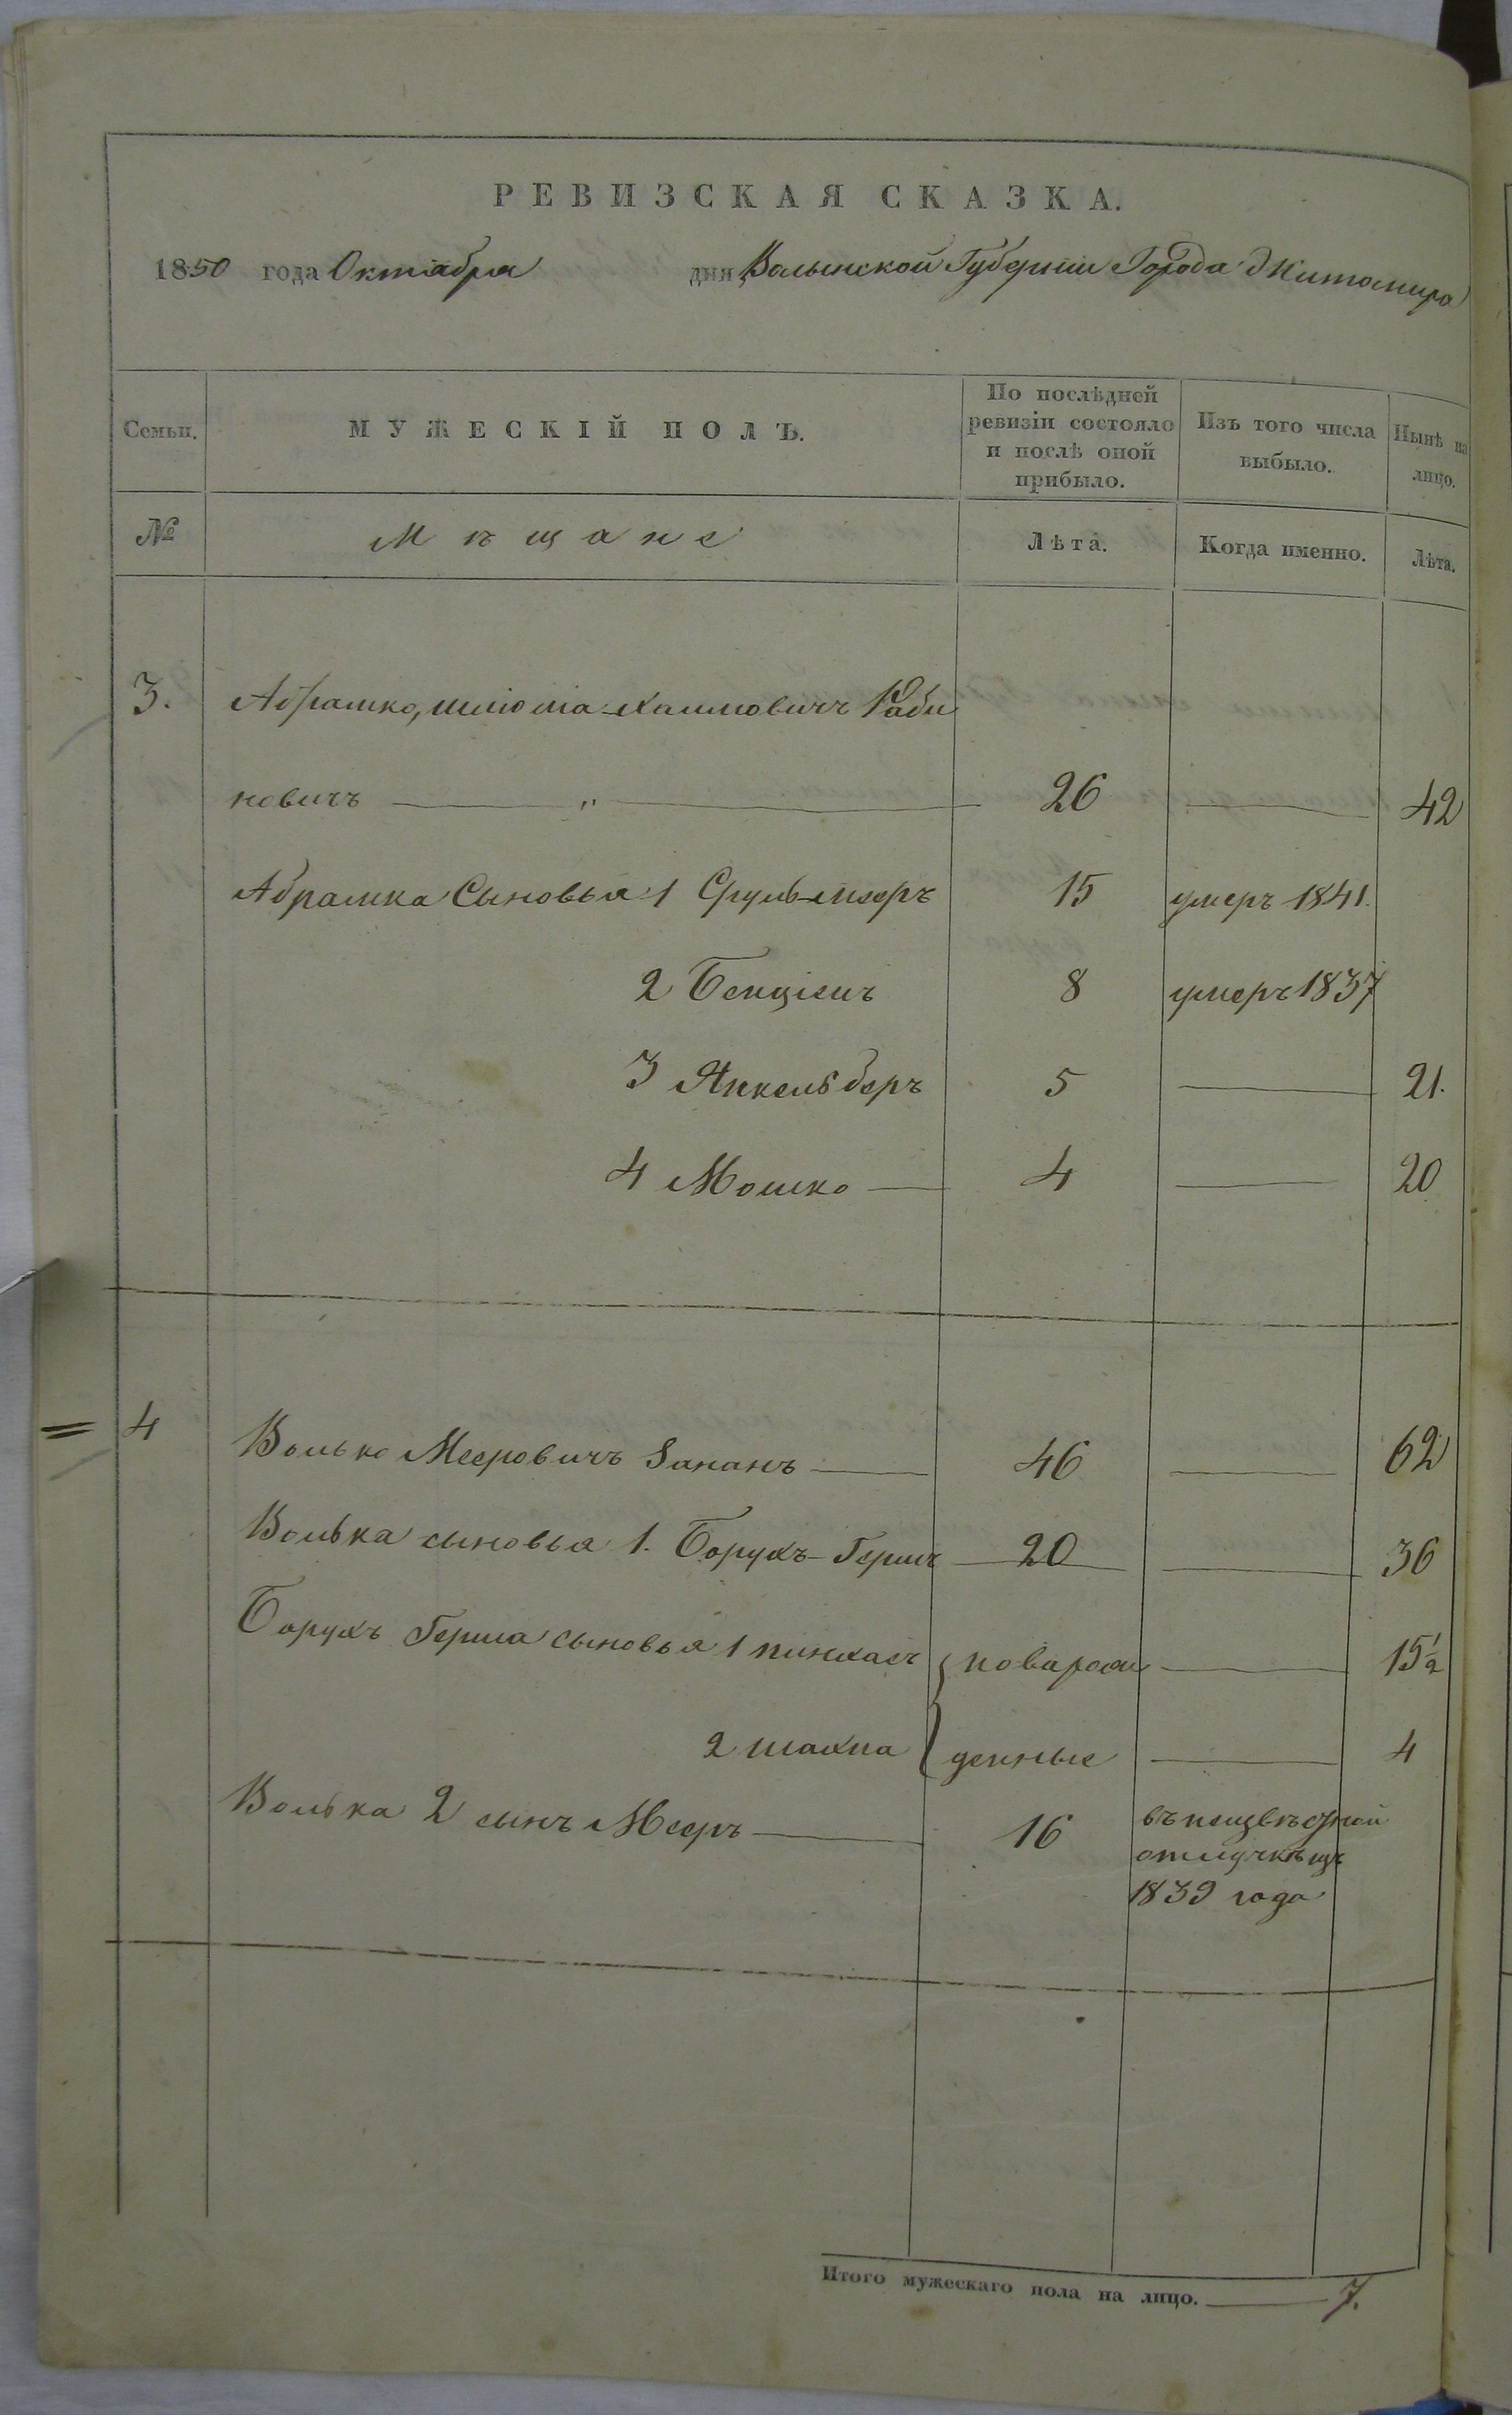 РЕВИЗСКАЯ СКАЗКА.
1850 года Октября дня Волынской Губернии Города Житомира
Семьи. МУЖЕСКІЙ ПОЛЪ. По послѣдней ревизіи состояло и послѣ оной прибыло. Изъ того числа выбыло. Нынѣ на лицо.
№ Мѣщане Лѣта. Когда именно. Лѣта.
3. Абрамко, шлюма-Хаимовичъ Раби
новичъ — " — 26 — 42
Абрамка Сыновья 1 Сруль-мееръ 15 умеръ 1841.
2 Бенціенъ 8 умеръ 1837
3 Янкель беръ 5 — 21.
4 Мошко — 4 — 20
= 4 Волько Мееровичъ — 46 — 62
Волька сыновья 1. Борухъ-Гершъ — 20 — 36
Борухъ Герша сыновья 1 пинхасъ новорож — 15½
2 шахна денные — 4
Волька 2 сынъ Мееръ — 16 въ неизвѣстной
отлучкѣ изъ
1839 года
Итого мужескаго пола на лицо. — 7.